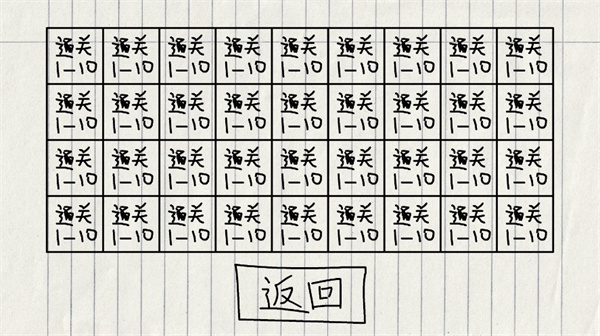 通关 通关 通关 通关 通关 通关 通关 通关 通关
1-10 1-10 1-10 1-10 1-10 1-10 1-10 1-10 1-10
通关 通关 通关 通关 通关 通关 通关 通关 通关
1-10 1-10 1-10 1-10 1-10 1-10 1-10 1-10 1-10
通关 通关 通关 通关 通关 通关 通关 通关 通关
1-10 1-10 1-10 1-10 1-10 1-10 1-10 1-10 1-10
通关 通关 通关 通关 通关 通关 通关 通关 通关
1-10 1-10 1-10 1-10 1-10 1-10 1-10 1-10 1-10
返回